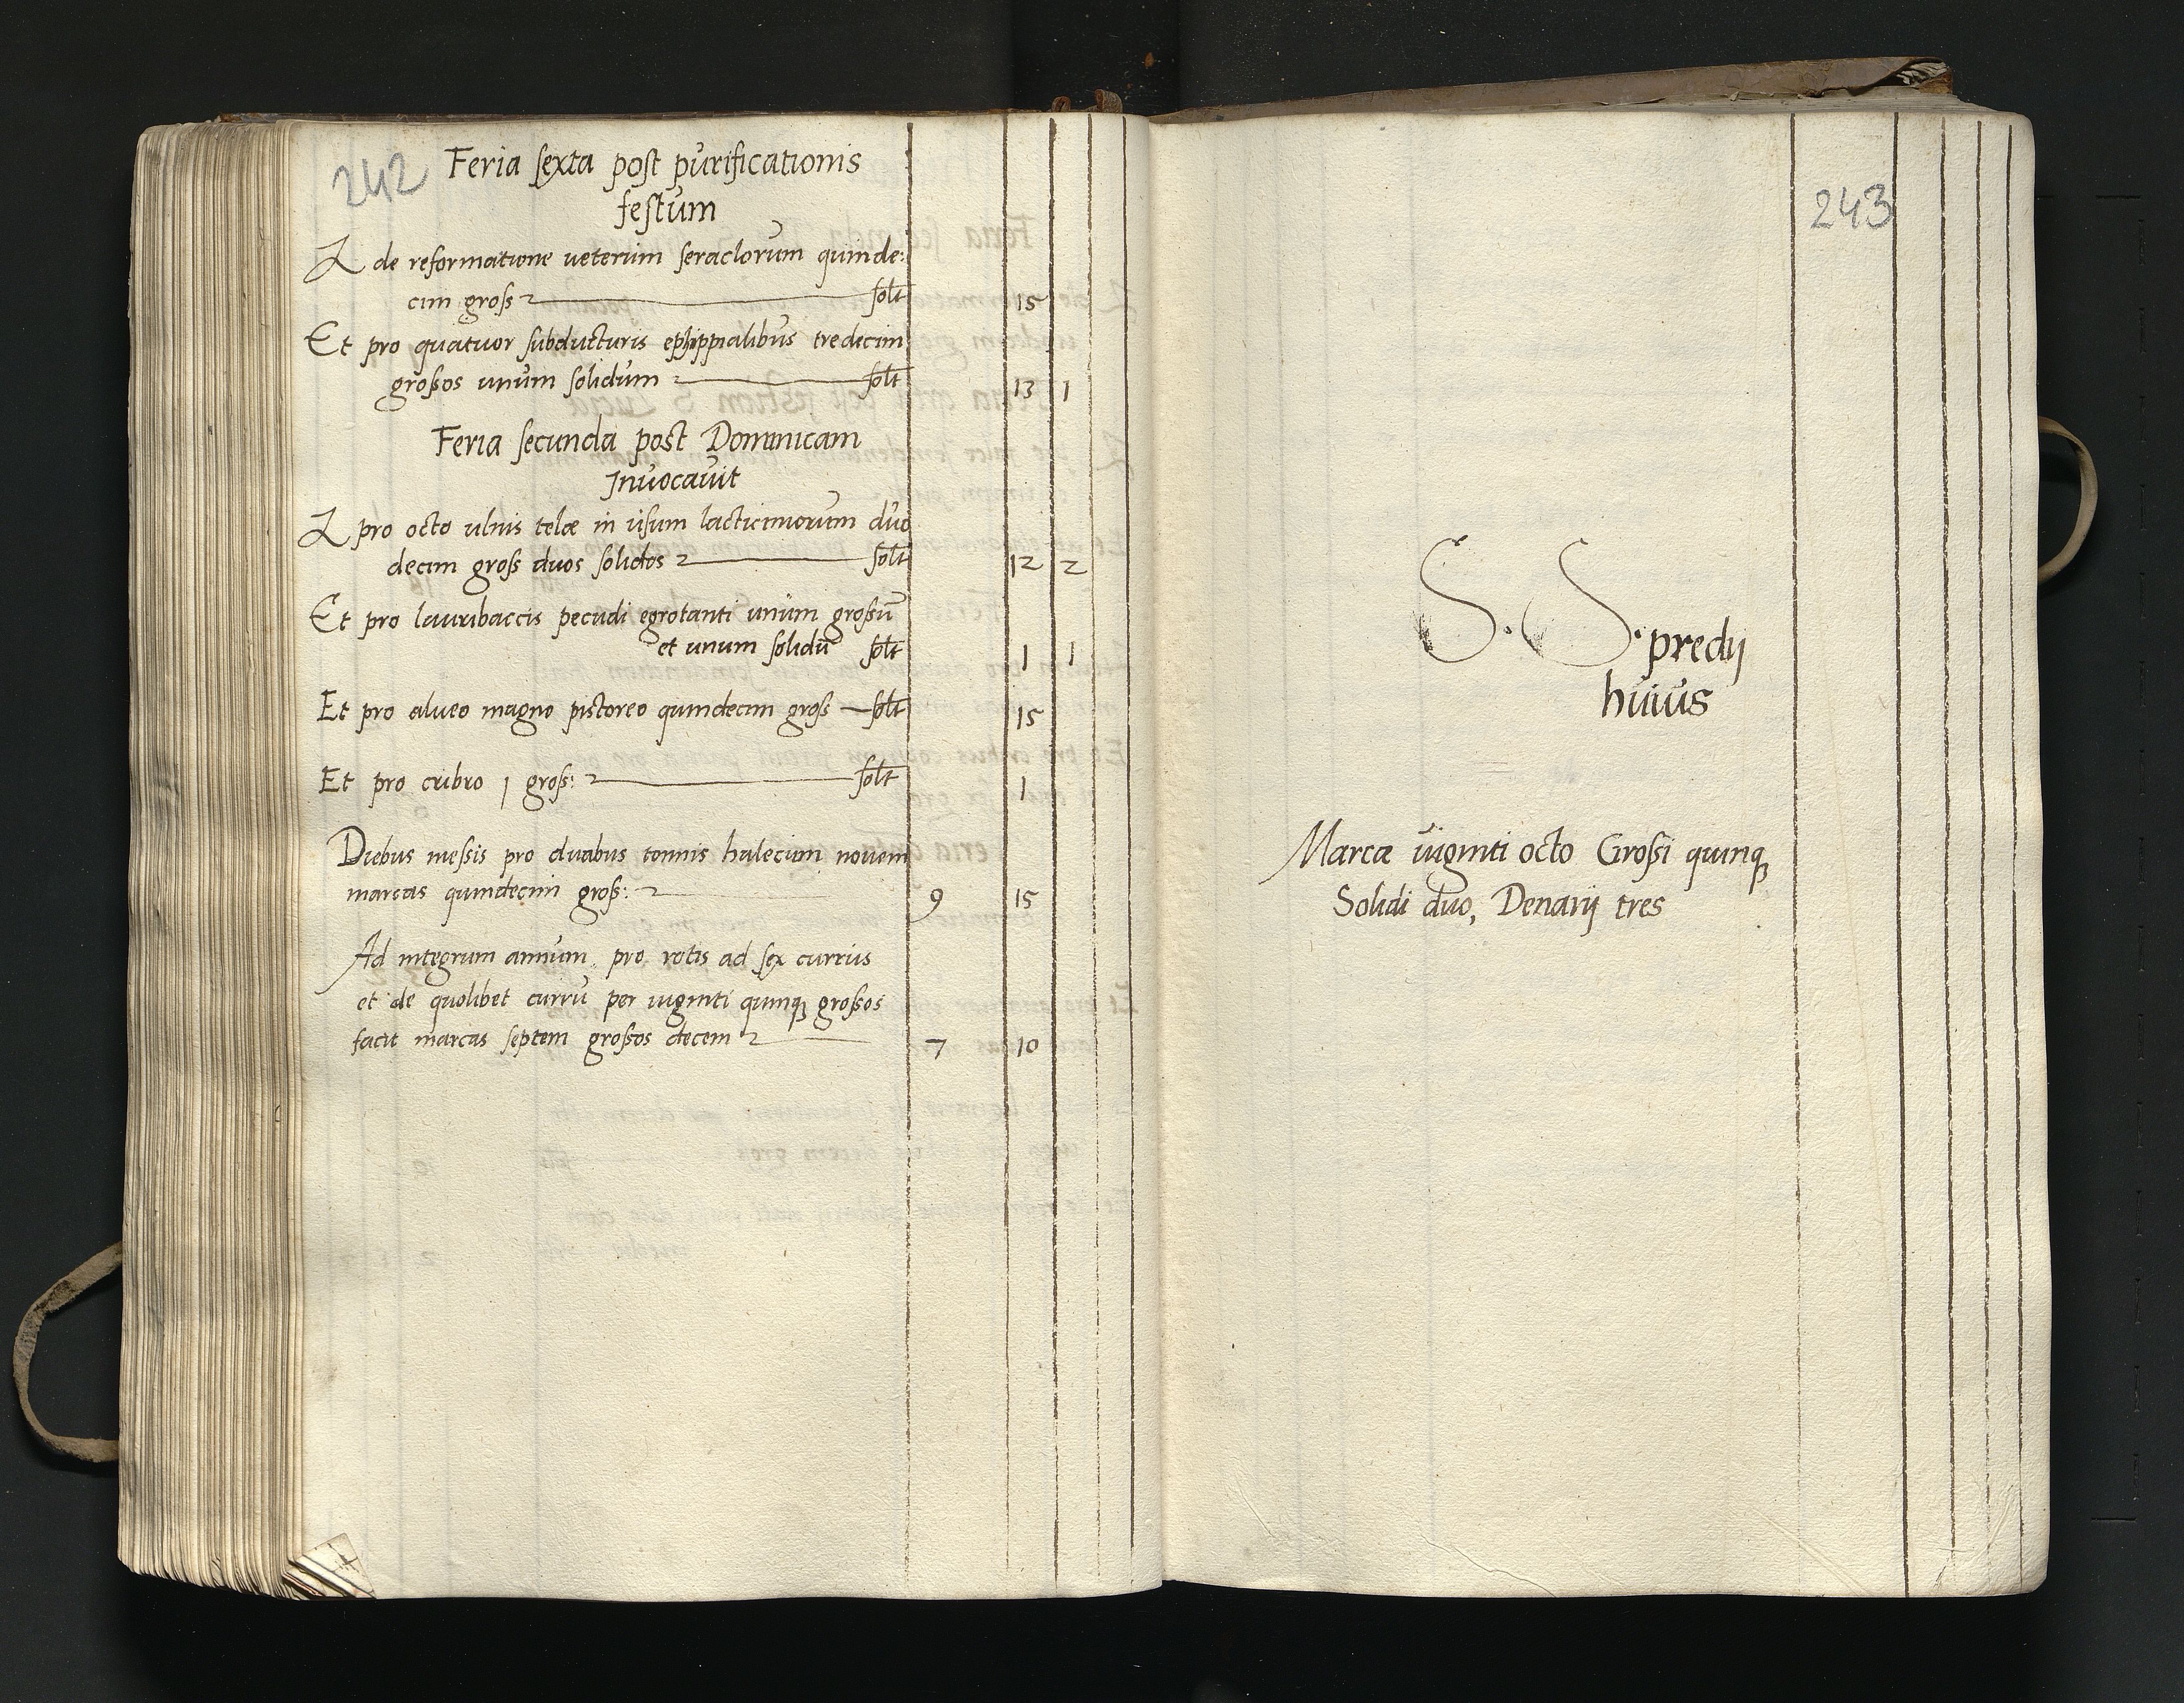 242
Feria sexta post purificationis
festum
de reformatione veterum seraclorum quinde:
cim gross solt 15
Et pro quatuor subducturis ephippialibus tredecim
grossos unum solidum solt 13 1
Feria secunda post Dominicam
Invocavit
pro octo ulnis telæ in usum lacticiniorum duo
decim gross duos solidos solt 12 2
Et pro lauribaccis pecudi egrotanti unum grossū
et unum solidū solt 1 1
Et pro alveo magno pistoreo quindecim gross solt 15
Et pro cribro 1 gross: solt 1
Diebus messis pro duabus tonnis halecium novem
marcas quindecim gross: 9 15
Ad integrum annum pro rotis ad sex currus
et de quolibet currū per viginti quinqȝ grossos
facit marcas septem grossos decem 7 10
243
S. S. predij
huius
Marcæ viginti octo Grossi quinqȝ
Solidi duo, Denarij tres